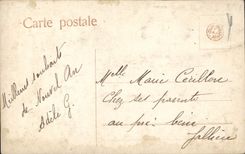 Carte postale
Meilleurs souhaits
de Nouvel An
Adèle G.
Melle Marie
Chez ses parents
au pré